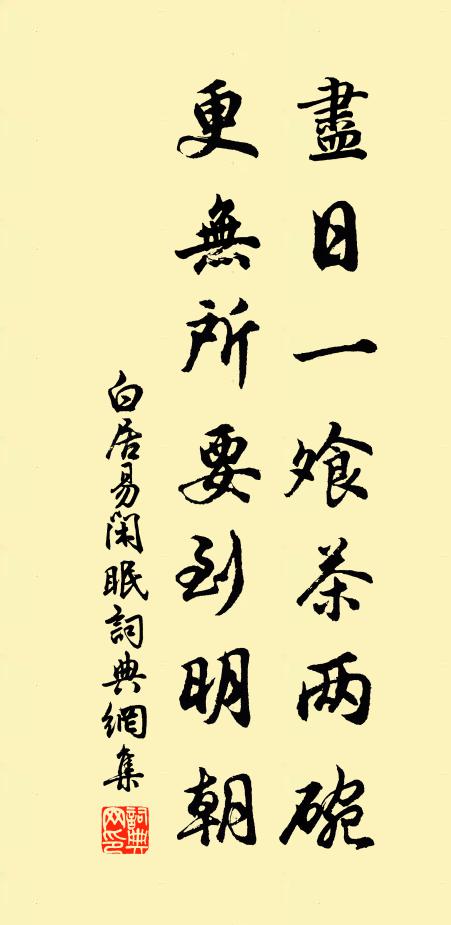 盡日一飧茶兩碗
更無所要到明朝
白居易閑眠詞典網集
詞典網印